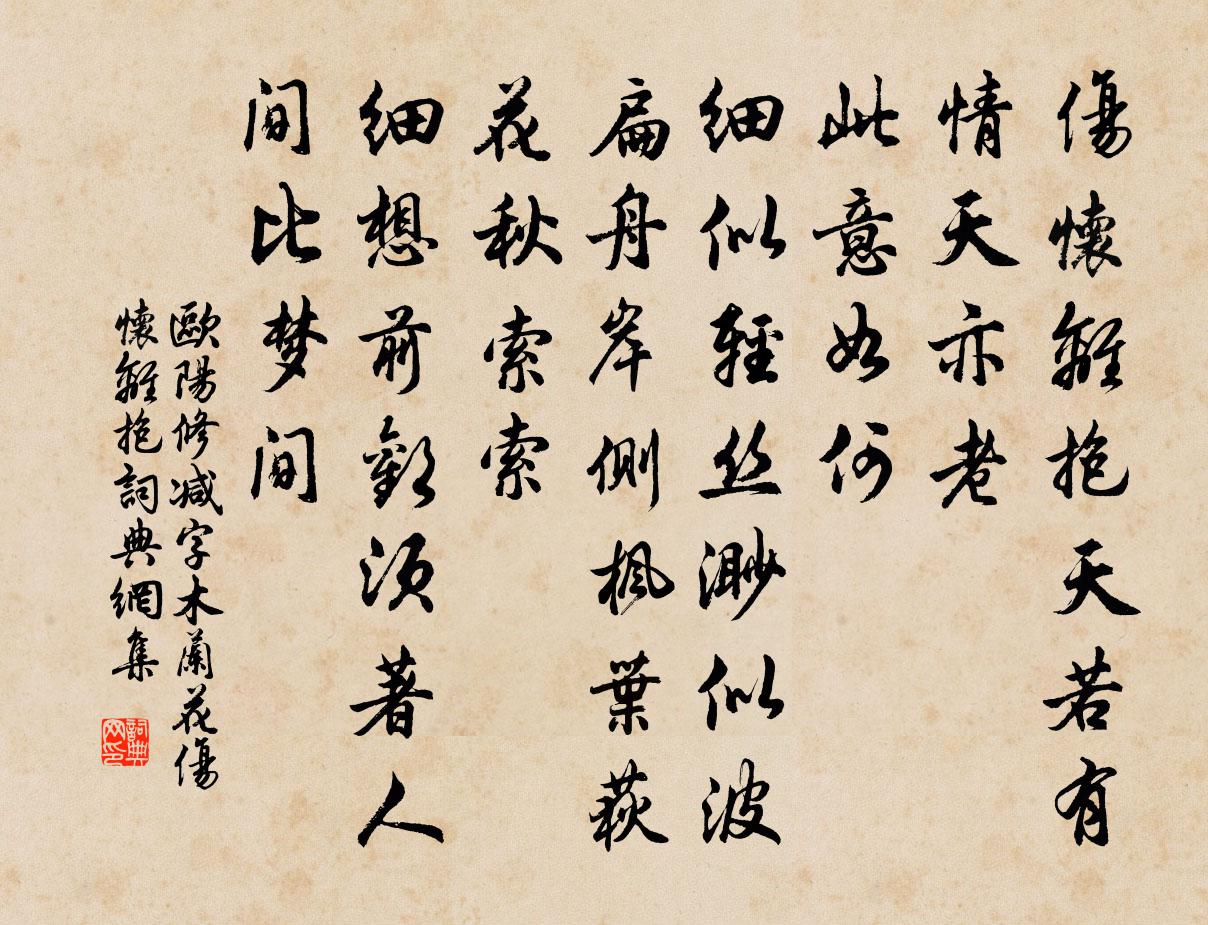 傷懷離抱天若有
情天亦老
此意如何
細似輕丝渺似波
扁舟岸側楓葉荻
花秋索索
細想前歡須著人
间比梦间
歐陽修减字木蘭花傷
懷離抱詞典網集
詞典
网印